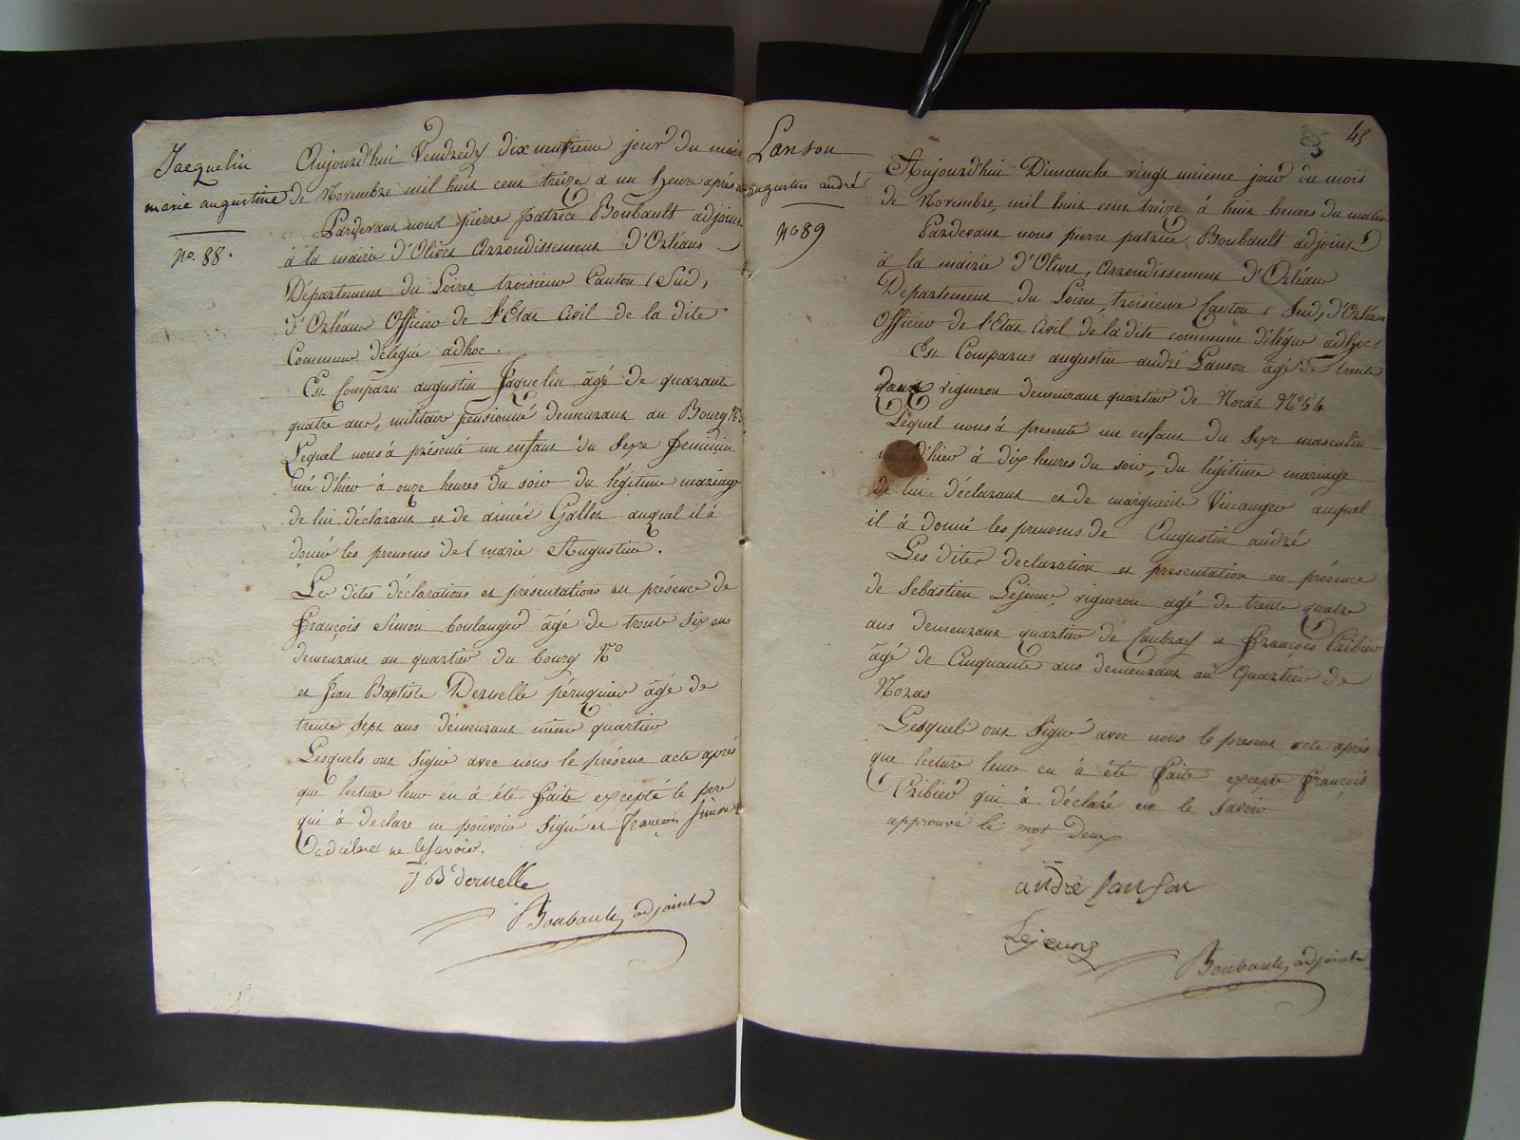 Jacquelin
marie augustine
no. 88.
Aujourdhui Vendredy dix neufieme jour du mois
de Novembre mil huit cent treize a un heure après
Pardevant nous pierre patrice Boubault adjoint
à la mairie d'Olivet Arrondissement d'Orléans
Département du Loiret troisieme Canton (Sud,
d'Orléans Officier de l'Etat Civil de la dite
Commune délégué adhoc.
Est Comparu augustin Jaquelin âgé de quarante
quatre ans, militaire pensionné demeurant au Bourg
Lequel nous à présenté un enfant du Sexe feminin
né d'hier à onze heures du soir du légitime mariage
de lui déclarant et de aimée Gallon auquel il à
donné les prenoms de marie Augustine.
Les dites déclarations et présentations en présence de
françois Simon boulanger âgé de trente six ans
demeurant au quartier du bourg No
et Jean Baptiste Deruelle péruquier âgé de
trente sept ans démeurant même quartier
Lesquels ont signé avec nous le présent acte après
que lecture leur en à été faite excepté le pere
qui à declaré ne pouvoir signé et françois Simon
a déclaré ne le savoir.
J Bte deruelle
Boubault, adjoint
45
Lanson
augustin andré
no 89
Aujourdhui Dimanche vingt unieme jour du mois
de Novembre, mil huit cent treize à huit heures du matin
Pardevant nous pierre patrice Boubault adjoint
à la mairie d'Olivet, Arrondissement d'Orléans
Departement du Loiret troisieme Canton (Sud, d'Orléans
Officier de l'Etat Civil de la dite commune délégué adhoc
Est Comparus augustin andré Lanson âgé de trente
deux vigneron demeurant quartier de Noras No 56
Lequel nous à presenté un enfant du Sexe masculin
né d'hier à dix heures du soir, du légitime mariage
de lui déclarant et de margueritte Vinauger auquel
il à donné les prenoms de Augustin andré
Les dites declaration et presentation en présence
de Sebastien Lejeune, vigneron agé de trente quatre
ans demeurant quartier de Caubray et François Cribier
âgé de Cinquante ans demeurant au quartier de
Noras
Lesquels ont signé avec nous le present acte après
que lecture leur en à été faite excepté françois
Cribier qui à déclaré ne le savoir
approuvé le mot Deux
andré lanson
Lejeune
Boubault, adjoint